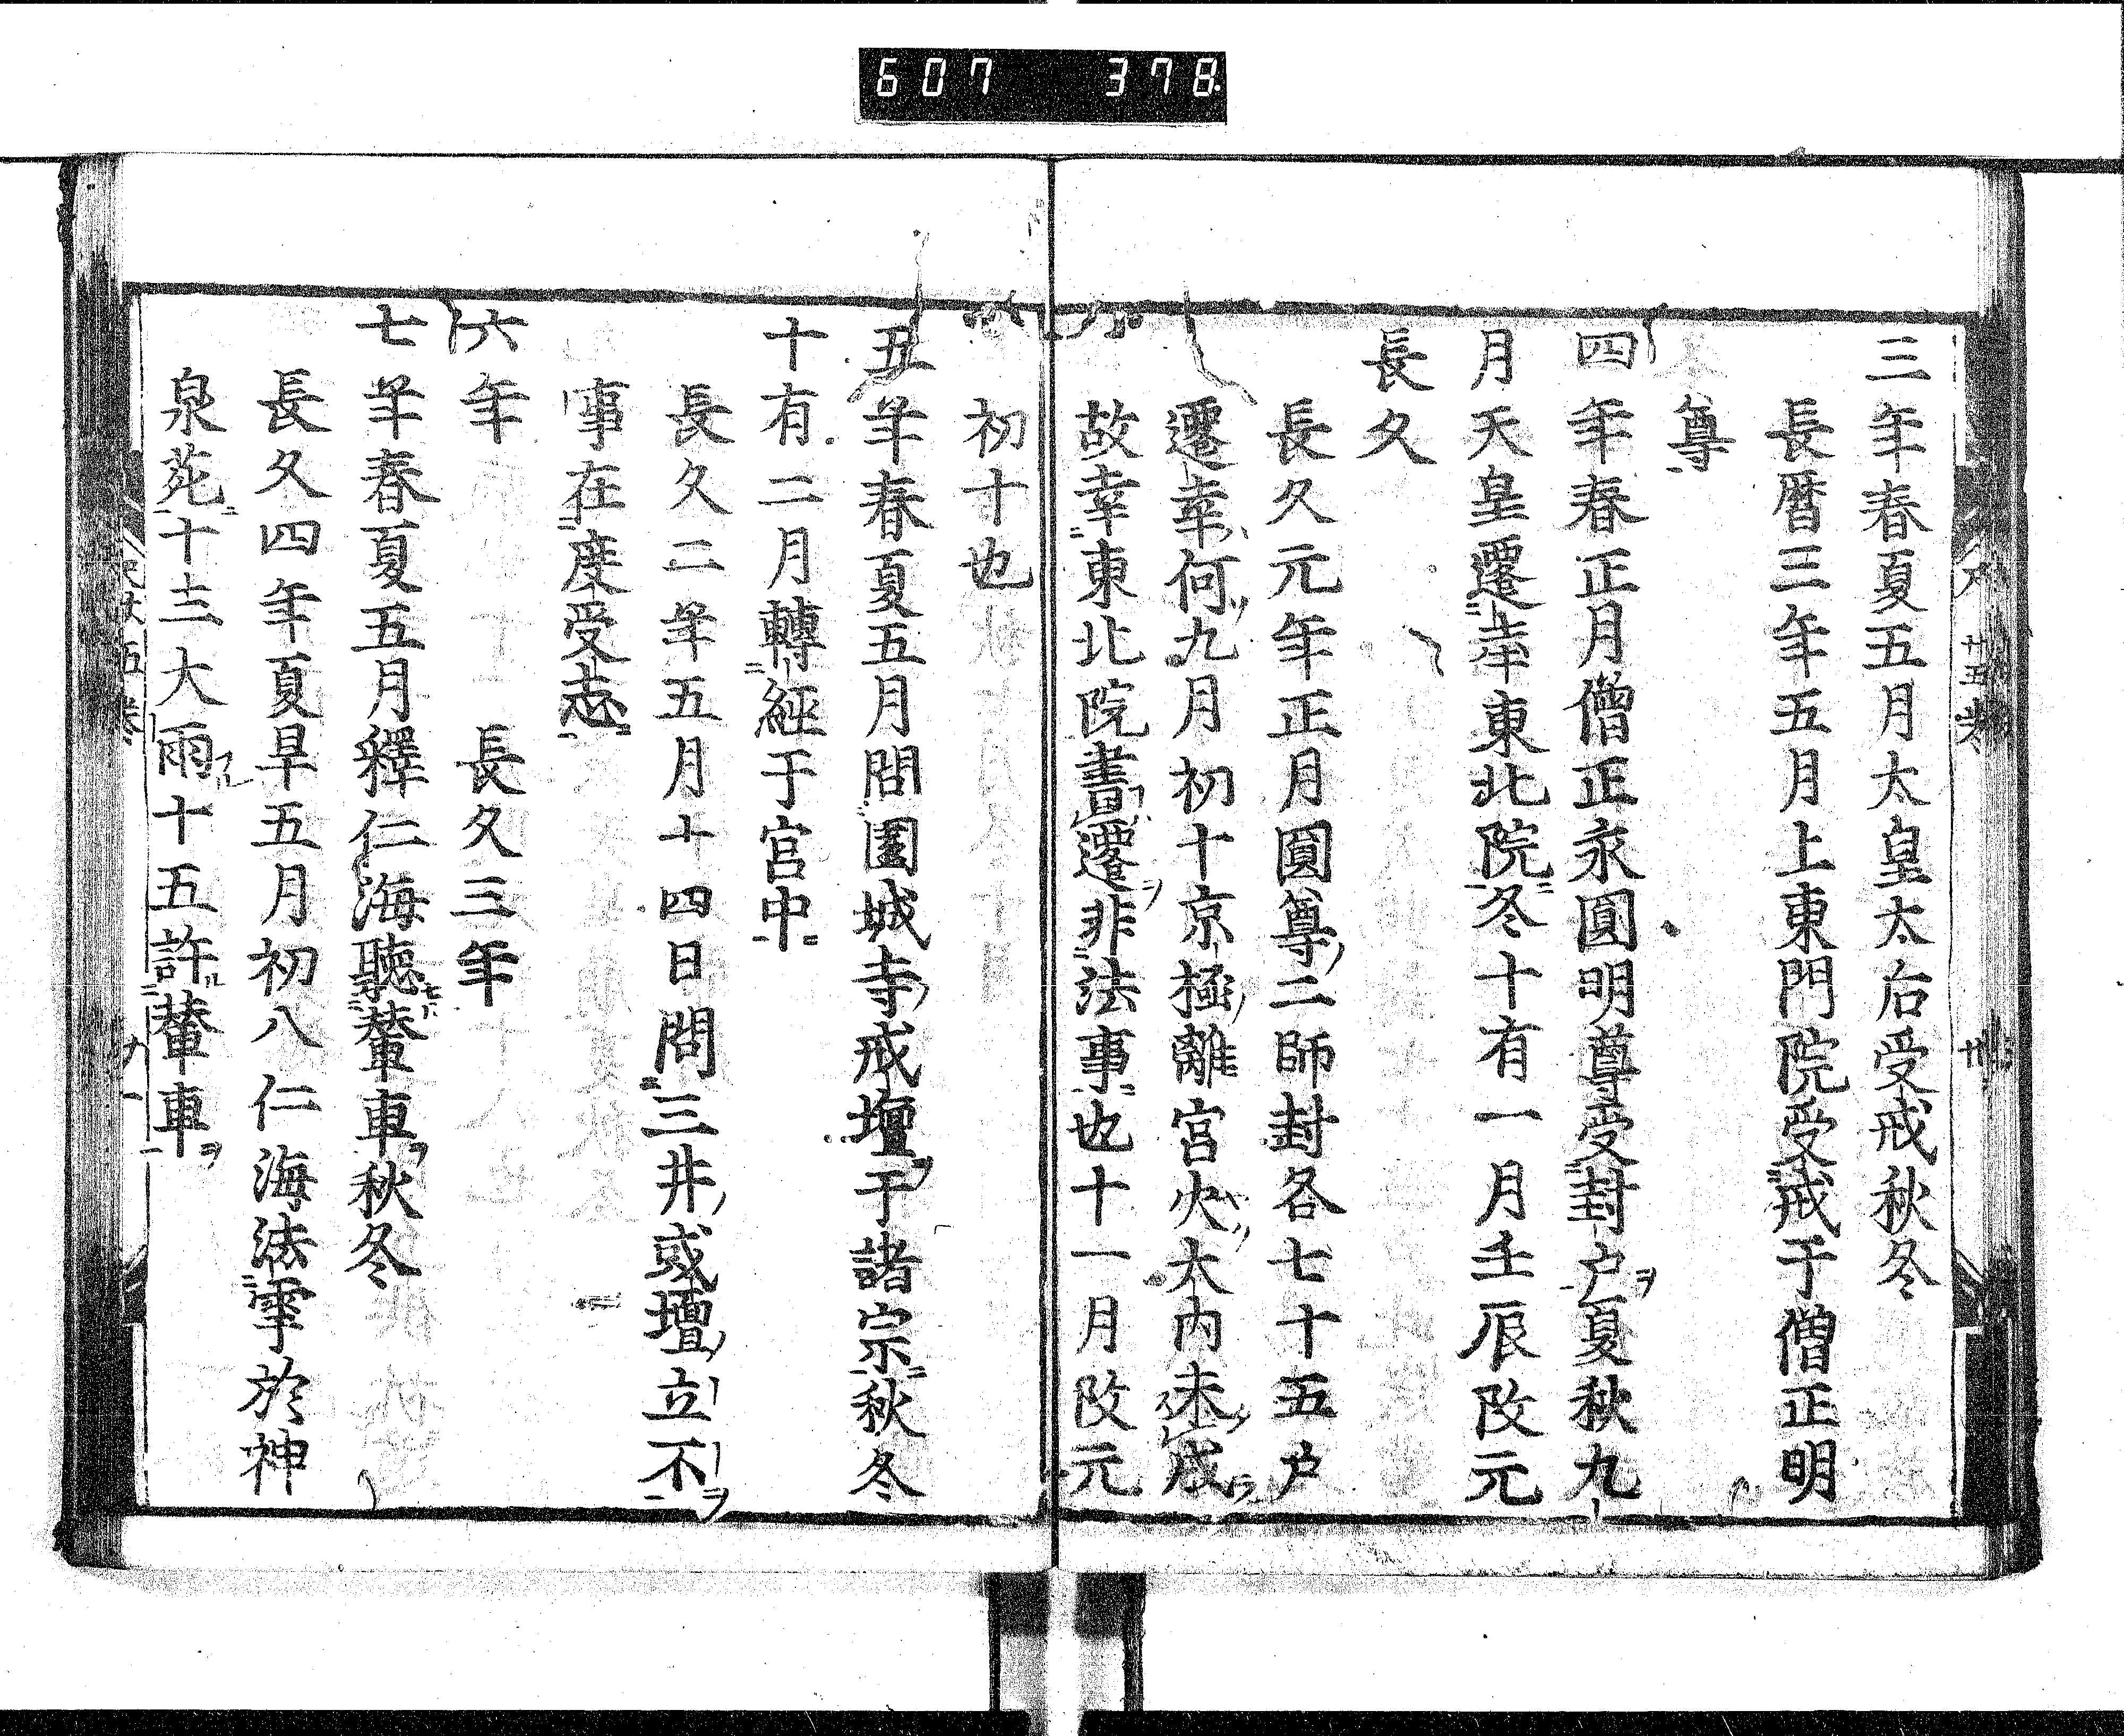 607 378
三年春夏五月太皇太后受戒秋冬
長暦三年五月上東門院受戒于僧正明
尊
四年春正月僧正永圓明尊受封戸夏秋九
月天皇遷幸東北院冬十有一月壬辰改元
長久
長久元年正月圓尊二師封各七十五戸
遷幸何九月初十京極離宮火大内未成
故幸東北院書遷非法事也十一月改元
初十也
五年春夏五月問園城寺戒壇于諸宗秋冬
十有二月轉經于宮中
長久二年五月十四日問三井戒壇立不
事在度受志
六年 長久三年
七年春夏五月釋仁海聽輦車秋冬
長久四年夏旱五月初八仁海法雩於神
泉苑十三大雨十五許輦車